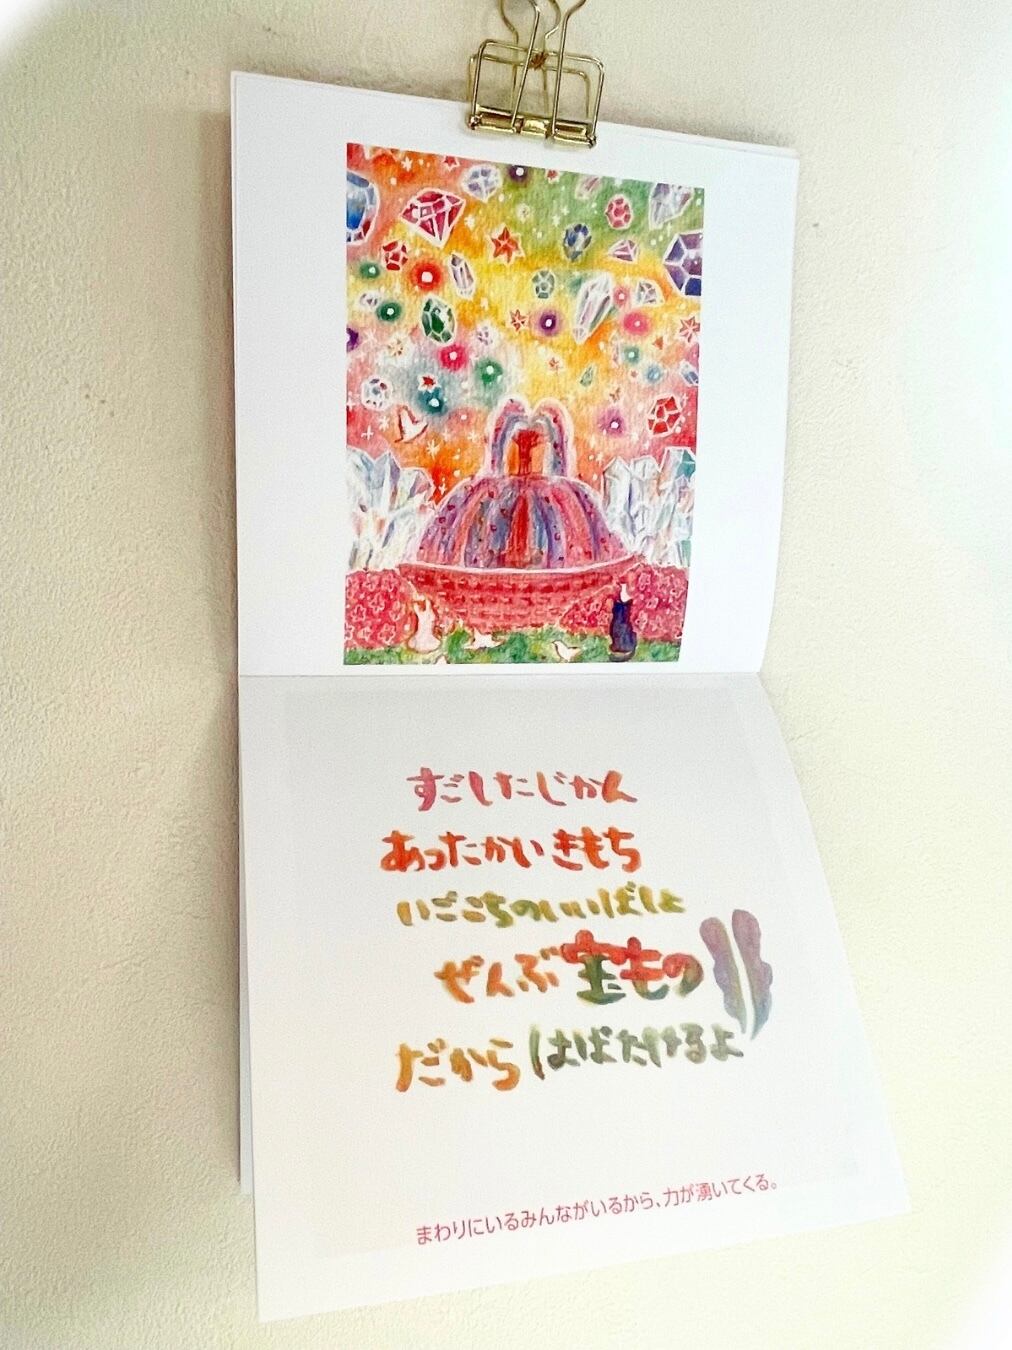 すごしたじかん
あったかい きもち
いごこちのいいばしょ
ぜんぶ宝もの
だから はばたけるよ
まわりにいるみんながいるから、力が湧いてくる。